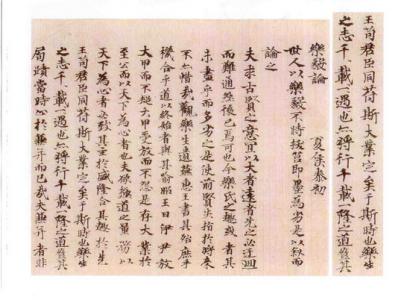 王苟君臣同符斯大業定矣于斯時也樂生
之志千載一遇也亦將行千載一隆之道豈其
樂毅論 夏侯泰初
世人以樂毅不時拔莒即墨為劣是以敘而
論之
夫求古賢之意宜以大者遠者先之必迂迴
而難通然後已焉可也今樂氏之趣或者其
未盡乎而多劣之是使前賢失指於將來
不亦惜哉觀樂生遺燕惠王書其殆庶乎
機合乎道以終始者與其喻昭王曰伊尹放
大甲而不疑大甲受放而不怨是存大業於
至公而以天下為心者也夫欲極道之量務以
天下為心者必致其主於盛隆合其趣於先
王苟君臣同符斯大業定矣于斯時也樂生
之志千載一遇也亦將行千載一隆之道豈其
局蹟當時止於兼并而已哉夫兼并者非